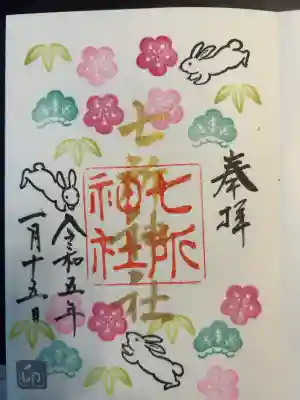 奉拝
七所神社
七所
神社
令和五年
一月十五日
卯